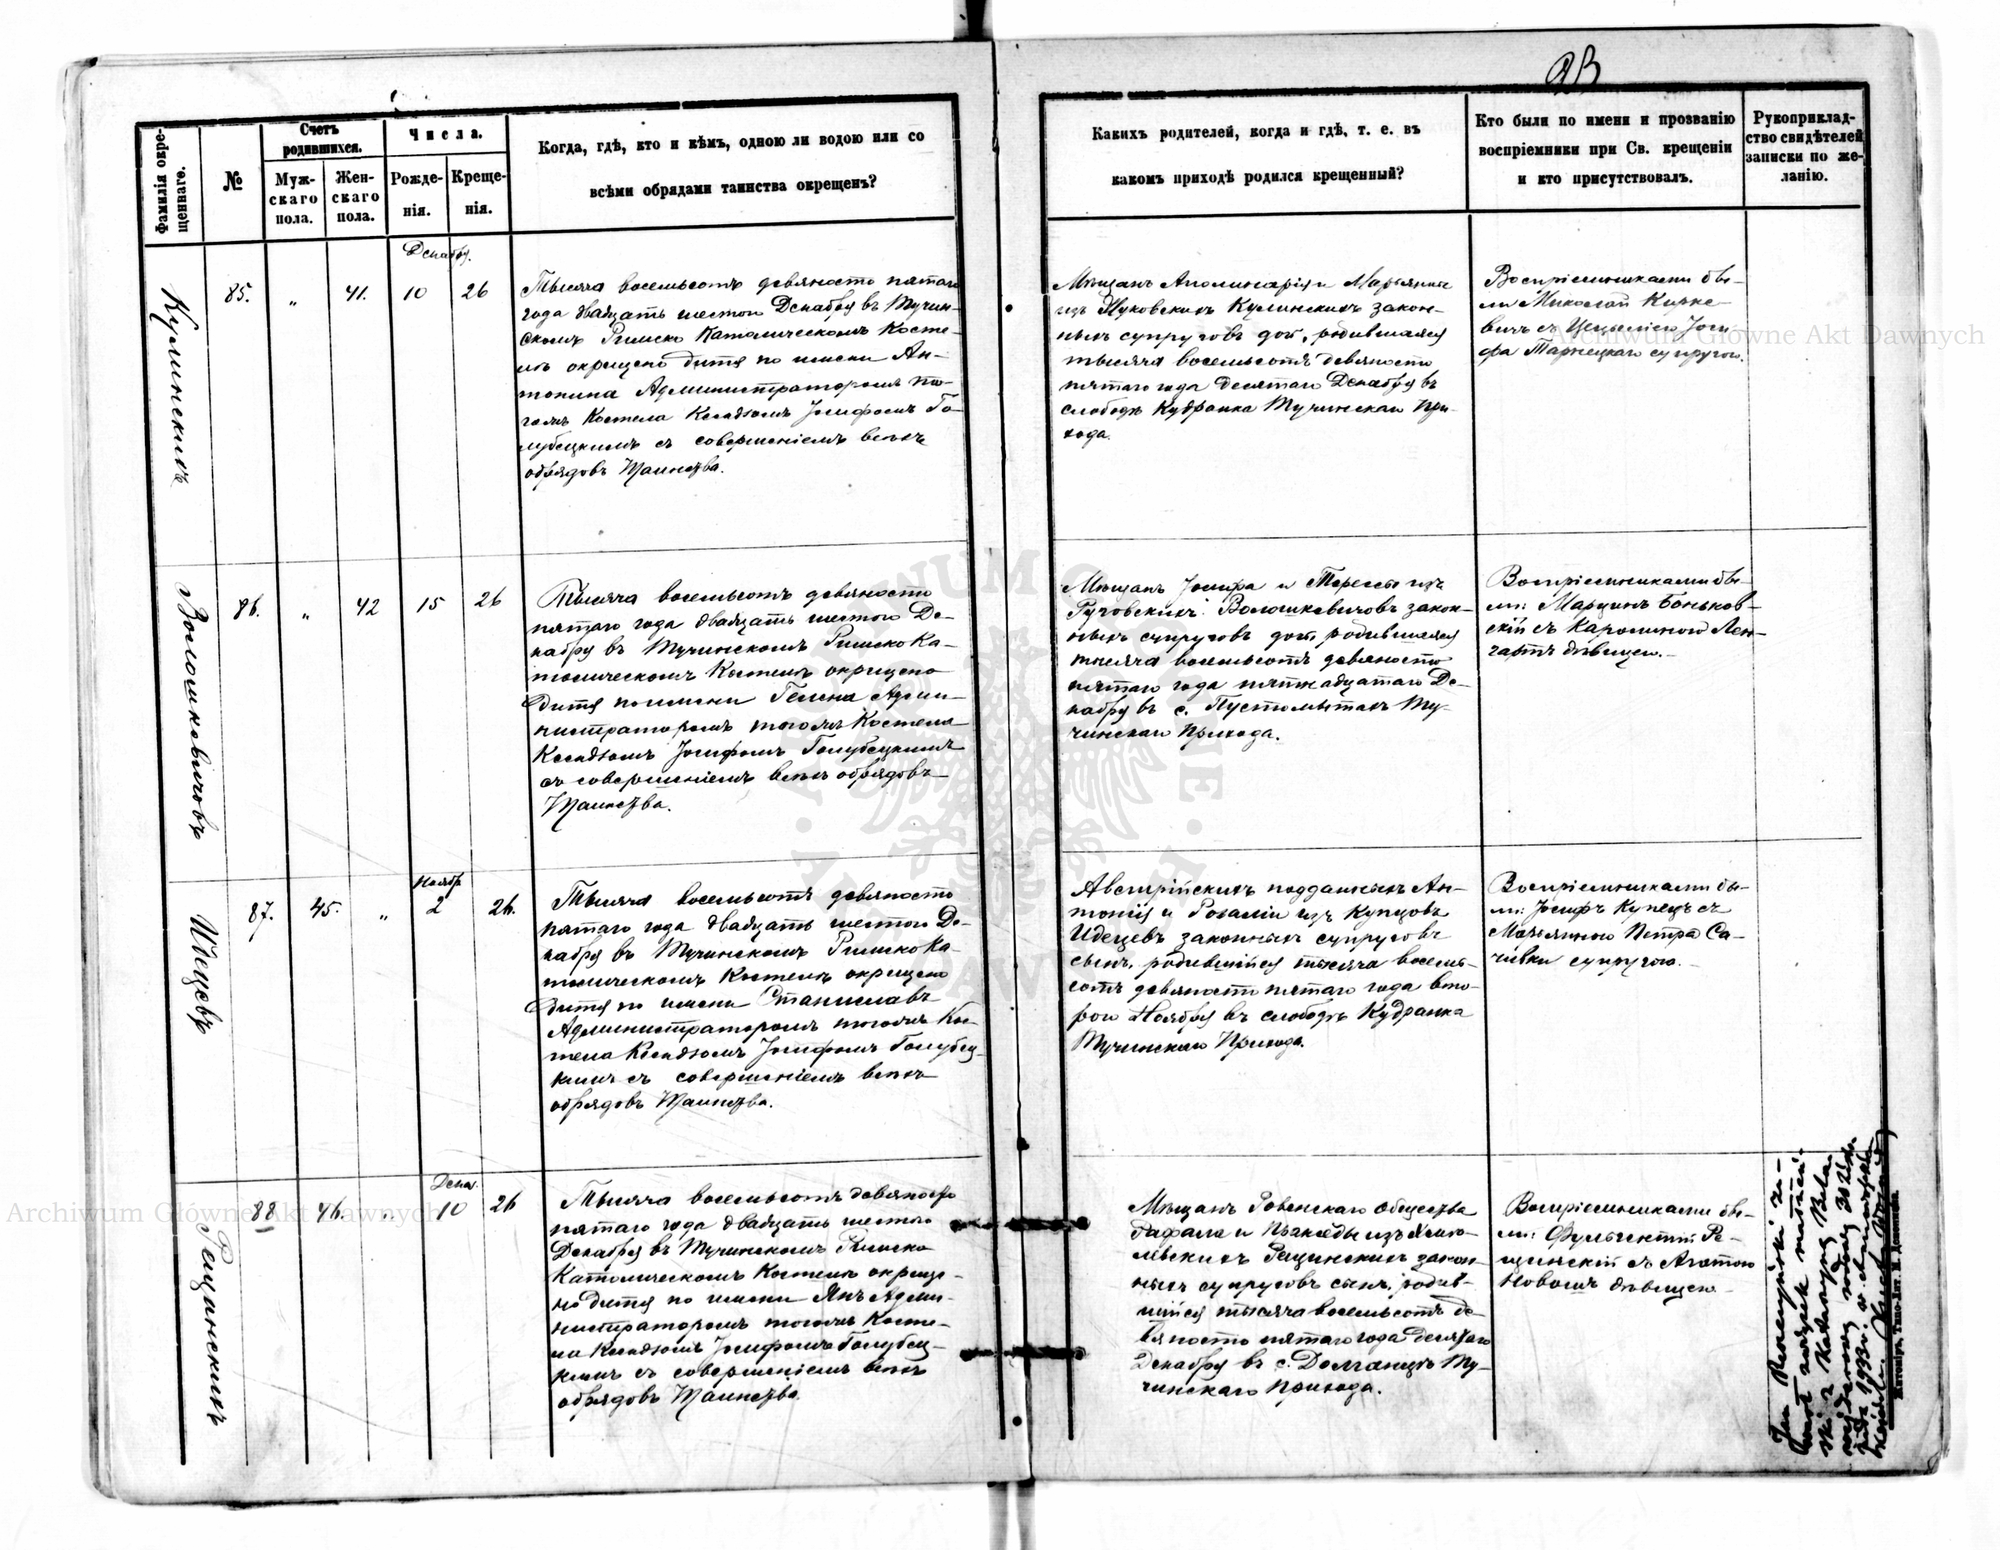 23
Фамилія окре-
щеннаго.
№
Счетъ
родившихся.
Муж-
скаго
пола.
Жен-
скаго
пола.
Числа.
Рожде-
нія.
Креще-
нія.
Когда, гдѣ, кто и кѣмъ, одною ли водою или со
всѣми обрядами таинства окрещенъ?
Какихъ родителей, когда и гдѣ, т. е. въ
какомъ приходѣ родился крещенный?
Кто были по имени и прозванію
воспріемники при Св. крещеніи
и кто присутствовалъ.
Рукоприклад-
ство свидѣтелей
записки по же-
ланію.
Кулинскихъ
85.
"
41.
Декабр.
10
26
Тысяча восемьсотъ девяносто пятаго
года двадцать шестого Декабря въ Тучин-
скомъ Римско Католическомъ Косте-
лѣ окрещено дитя по имени Ан-
тонина Администраторомъ то-
гожъ Костела Ксендзомъ Іосифомъ Го-
лубецкимъ съ совершеніемъ всѣхъ
обрядовъ Таинства.
Мѣщанъ Аполинарія и Марьянны
изъ Жуковскихъ Кулинскихъ закон-
ныхъ супруговъ дочь, родившаяся
тысяча восемьсотъ девяносто
пятаго года десятаго Декабря въ
слободѣ Кудранка Тучинскаго При-
хода.
Воспріемниками бы-
ли Николай Кирке-
вичъ съ Цецыліею Іоси-
фа Тарнецкаго супругою.
Волошкевичовъ
86.
"
42
15
26
Тысяча восемьсотъ девяносто
пятаго года двадцать шестого Де-
кабря въ Тучинскомъ Римско Ка-
толическомъ Костелѣ окрещено
дитя по имени Гелена Адми-
нистраторомъ тогожъ Костела
Ксендзомъ Іосифомъ Голубецкимъ
съ совершеніемъ всѣхъ обрядовъ
Таинства.
Мѣщанъ Іосифа и Терессы изъ
Гуховскихъ Волошкевичовъ закон-
ныхъ супруговъ дочь родившаяся
тысяча восемьсотъ девяносто
пятаго года пятнадцатаго Де-
кабря въ с. Пустомытахъ Ту-
чинскаго Прихода.
Воспріемниками бы-
ли: Марцинъ Боньков-
скій съ Каролиною Лен-
гартъ дѣвицею.
Идецовъ
87.
45.
"
Ноябр
2
26.
Тысяча восемьсотъ девяносто
пятаго года двадцать шестого Де-
кабря въ Тучинскомъ Римско Ка-
толическомъ Костелѣ окрещено
дитя по имени Станиславъ
Администраторомъ тогожъ Кос-
тела Ксендзомъ Іосифомъ Голубец-
кимъ съ совершеніемъ всѣхъ
обрядовъ Таинства.
Австрійскихъ подданныхъ Ан-
тонія и Розаліи изъ Купцовъ
Идецевъ законныхъ супруговъ
сынъ, родившійся тысяча восемь-
сотъ девяносто пятаго года вто-
рого Ноября въ слободѣ Кудранка
Тучинскаго Прихода.
Воспріемниками бы-
ли: Іосифъ Купецъ съ
Марьянною Петра Са-
чивки супругою.
Рещинскихъ
88
46.
"
Декаб.
10
26
Тысяча восемьсотъ девяносто
пятаго года двадцать шестого
Декабря въ Тучинскомъ Римско
Католическомъ Костелѣ окреще-
но дитя по имени Янъ Адми-
нистраторомъ тогожъ Косте-
ла Ксендзомъ Іосифомъ Голубец-
кимъ съ совершеніемъ всѣхъ
обрядовъ Таинства.
Мѣщанъ Ровенскаго Общества
Рафала и Пракседы изъ
Рещинскихъ закон-
ныхъ супруговъ сынъ, родив-
шійся тысяча восемьсотъ де-
вяносто пятаго года десятаго
Декабря въ с. Долганцѣ Ту-
чинскаго Прихода.
Воспріемниками бы-
ли: Фульгентій Ре-
щинскій съ Агатою
Новошъ дѣвицею
Jan
związek małżeń-
ski z Katarzyną
1933 r.
Житоміръ, Типо-Лит. И. Доненмана.
Archiwum Główne Akt Dawnych
Archiwum Główne Akt Dawnych
ARCHIWUM GŁÓWNE AKT DAWNYCH